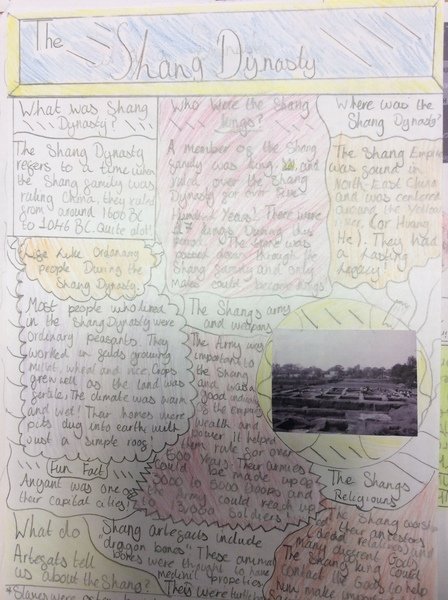 The
Shang Dynasty
What was Shang
Dynasty?
The Shang Dynasty
refers to a time when
the Shang family was
ruling China, they ruled
from around 1600 BC
to 1046 BC. Quite alot!
Who were the Shang
Kings?
A member of the Shang
family was king, and
ruled over the Shang
Dynasty for over five
Hundred Years! There were
kings During this
The throne was
passed down through the
Shang family and only
males could become kings
Where was the
Shang Dynasty?
The Shang Empire
was found in
North-East China
and was centered
around the Yellow
River (or Huang
He). They had
a lasting
legacy
Life like Ordanary
people During the
Shang Dynasty.
Most people who lived
in the Shang Dynasty were
ordinary peasants. They
worked in feilds growing
millet, wheat and rice. Crops
grew well as the land was
fertile. The climate was warm
and wet! Their homes were
pits dug into earth with
Just a simple roof!
The Shangs army
and weapons
The Army was
important to
the Shang
and was a
good
of the empires
wealth and
power. It helped
them rule for over
500 years. Their armies
could be made up of
3000 - 5000 troops and
the Army could reach up
Soldiers!
Fun Fact!
Anyang was one of
their capital cities!
The Shangs
Religions
The Shang worship
their ancestors
dead relatives and
many different Gods
The Shang king could
contact the Gods to help
make important
What do
Artefacts tell
us about the Shang?
Shang artefacts include
"dragon bones" These animal
bones were thought to have
Their were